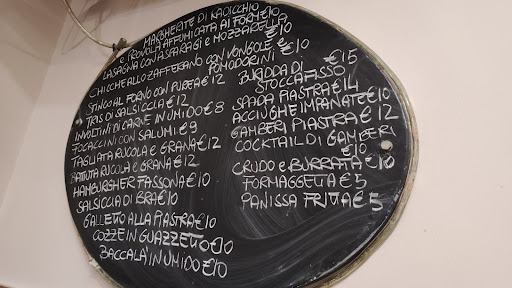 MARGHERITE DI RADICCHIO
e PROVOLA AFFUMICATA AI FORNI €10
LASAGNA CON ASPARAGI e MOZZARELLA €10
CHICCHE ALLO ZAFFERANO CON VONGOLE e POMODORINI €10
STINCO AL FORNO CON PUREA €12
TRIS DI SALSICCIA €12
INVOLTINI DI CARNE IN UMIDO €8
FOCACCINI CON SALUMI €9
TAGLIATA RUCOLA e GRANA €12
BATTUTA RUCOLA e GRANA €12
HAMBURGHER FASSONA €10
SALSICCIA DI BRA €10
GALLETTO ALLA PIASTRA €10
COZZE IN GUAZZETTO €10
BACCALA' IN UMIDO €10
BURIDDA DI STOCCAFISSO €15
SPADA PIASTRA €14
ACCIUGHE IMPANATE €10
GAMBERI PIASTRA €12
COCKTAIL DI GAMBERI
€10
CRUDO e BURRATA €10
FORMAGGETTA €5
PANISSA FRITTA €5